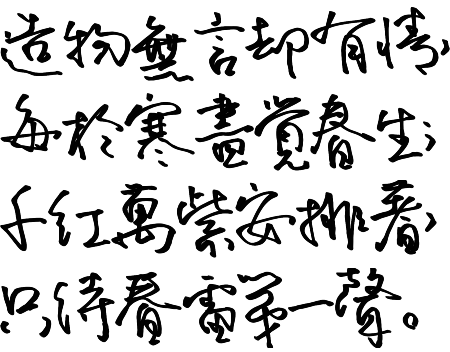 造物無言却有情，
每於寒盡覺春生；
千紅萬紫安排著，
只待春雷第一聲。